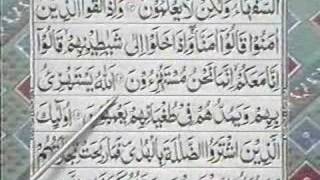 السُّفَهَاءُ وَلٰكِنْ لَا يَعْلَمُوْنَ ۝ وَاِذَا لَقُوا الَّذِيْنَ
اٰمَنُوْا قَالُوْۤا اٰمَنَّا ۖ وَاِذَا خَلَوْا اِلٰى شَيٰطِيْنِهِمْ قَالُوْۤا
اِنَّا مَعَكُمْ اِنَّمَا نَحْنُ مُسْتَهْزِءُوْنَ ۝ اَللّٰهُ يَسْتَهْزِئُ
بِهِمْ وَيَمُدُّهُمْ فِيْ طُغْيَانِهِمْ يَعْمَهُوْنَ ۝ اُولٰٓئِكَ
الَّذِيْنَ اشْتَرَوُا الضَّلٰلَةَ بِالْهُدٰى فَمَا رَبِحَتْ تِجَارَتُهُمْ